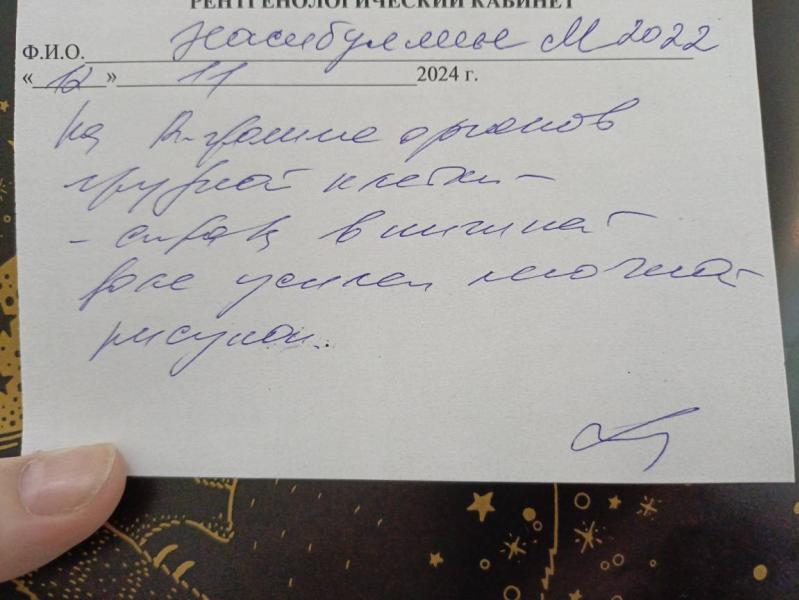 РЕНТГЕНОЛОГИЧЕСКИЙ КАБИНЕТ
Ф.И.О. М 2022
«12» 11 2024 г.
На R-грамме органов
грудной клетки –
– справа в нижней
доле усилен легочной
рисунок.